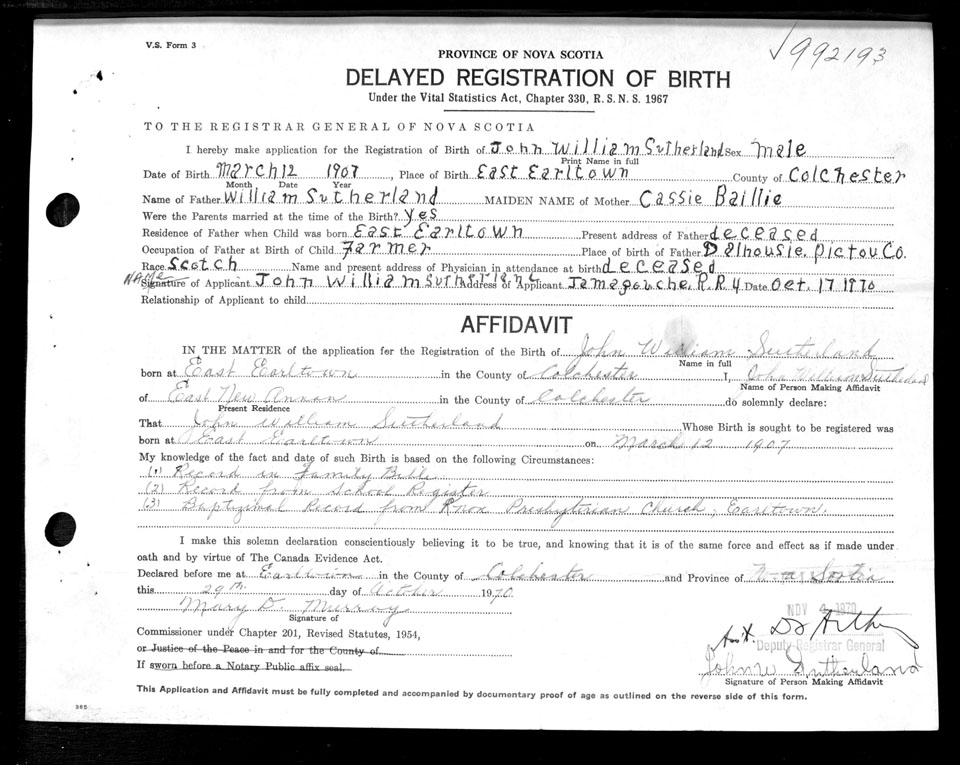 V.S. Form 3
992193
PROVINCE OF NOVA SCOTIA
DELAYED REGISTRATION OF BIRTH
Under the Vital Statistics Act, Chapter 330, R. S. N. S. 1967
TO THE REGISTRAR GENERAL OF NOVA SCOTIA
I hereby make application for the Registration of Birth of John William Sutherland Sex Male
Print Name in full
Date of Birth March 12 1907, Place of Birth East Earltown County of Colchester
Month Date Year
Name of Father William Sutherland MAIDEN NAME of Mother Cassie Baillie
Were the Parents married at the time of the Birth? yes
Residence of Father when Child was born East Earltown Present address of Father deceased
Occupation of Father at Birth of Child Farmer Place of birth of Father Dalhousie, Pictou Co.
Race Scotch Name and present address of Physician in attendance at birth deceased
Name
Signature of Applicant John William Sutherland Address of Applicant Tamagouche, R.R 4 Date Oct. 17 1970
Relationship of Applicant to child
AFFIDAVIT
IN THE MATTER of the application for the Registration of the Birth of John William Sutherland
Name in full
born at East Earltown in the County of Colchester I, John William Sutherland
Name of Person Making Affidavit
of East New Annan in the County of Colchester do solemnly declare:
Present Residence
That John William Sutherland Whose Birth is sought to be registered was
born at East Earltown on March 12 1907
My knowledge of the fact and date of such Birth is based on the following Circumstances:
(1) Record in Family Bible
(2) Record from School Register
(3) Baptizimal Record from Knox Presbyterian Church, Earltown.
I make this solemn declaration conscientiously believing it to be true, and knowing that it is of the same force and effect as if made under
oath and by virtue of The Canada Evidence Act.
Declared before me at Earltown in the County of Colchester and Province of Nova Scotia
this 29th day of October 1970
Mary D. Murray
Signature of
NOV 4 1970
Commissioner under Chapter 201, Revised Statutes, 1954,
or Justice of the Peace in and for the County of
Deputy Registrar General
If sworn before a Notary Public affix seal.
John W Sutherland
Signature of Person Making Affidavit
This Application and Affidavit must be fully completed and accompanied by documentary proof of age as outlined on the reverse side of this form.
385